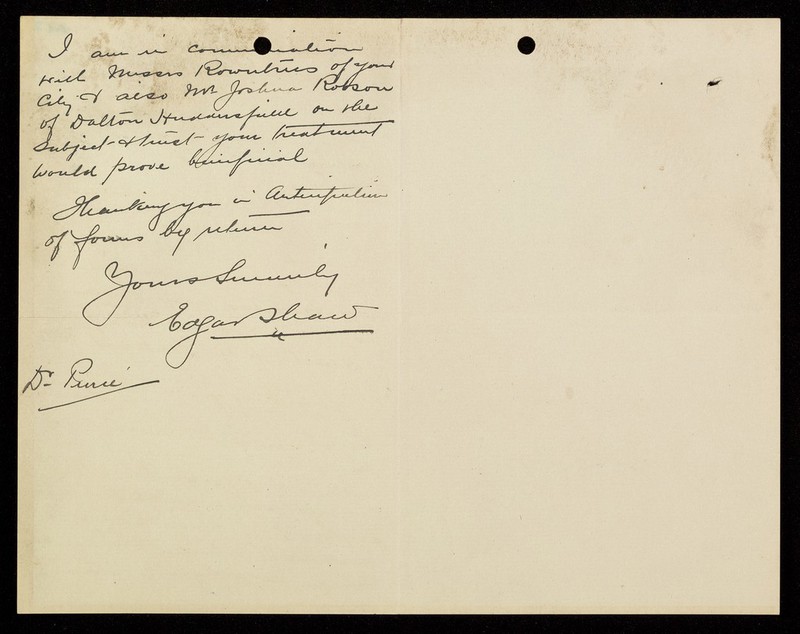 I am in communication
with Messrs Rowntrees of your
City & also Mr Joshua Robson
of Dalton Huddersfield on the
Subject & trust your treatment
would prove beneficial
Thanking you in Anticipation
of forms by return
Yours Sincerely
Edgar Shaw
Dr Pierce